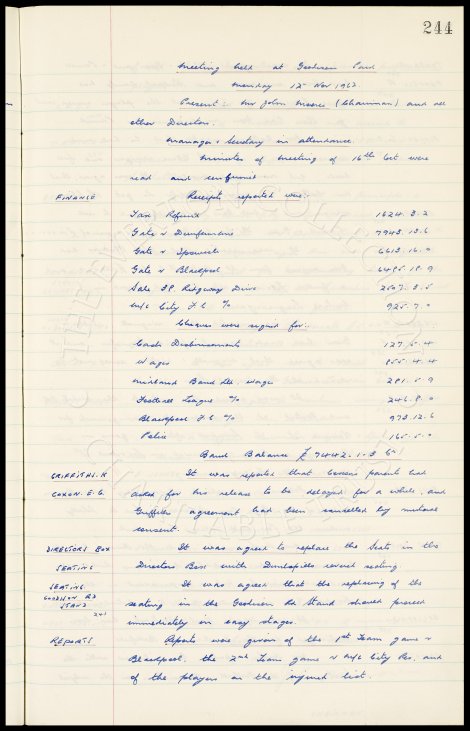 244
Meeting held at Goodison Park
Monday 12th Nov 1962
Present: Mr John Moores (Chairman) and all
other Directors.
Manager & Secretary in attendance.
Minutes of meeting of 16th Oct were
read and confirmed
FINANCE Receipts reported were:
Tax Refund 1624. 8. 2
Gate v Dunfermline 7943. 13. 6
Gate v Ipswich 6613. 16. 0
Gate v Blackpool 6495. 19. 9
Sale Ridgeway Drive 2507. 8. 5
M/c City F.C. % 925. 7. 0
Cheques were signed for:
Cash Disbursements 127. 5. 4
Wages 855. 4. 4
Midland Bank Ltd. wages 291. 5. 9
Football League % 246. 8. 0
Blackpool F.C. % 973. 12. 6
Police 165. 5. 0
Bank Balance £7442. 1. 3
GRIFFITHS. K It was reported that Coxon's parents had
COXON. E.G. asked for his release to be delayed for a while, and
Griffiths agreement had been cancelled by mutual
consent.
DIRECTORS BOX It was agreed to replace the Seats in the
SEATING Directors Box with Dunlopillo covered seating
SEATING It was agreed that the replacing of the
GOODISON RD seating in the Goodison Rd Stand should proceed
STAND immediately in easy stages.
241
REPORTS Reports were given of the 1st Team game v
Blackpool, the 2nd Team game v M/c City Res. and
of the players on the injured list.
THE EVERTON COLLECTION
CHARITABLE